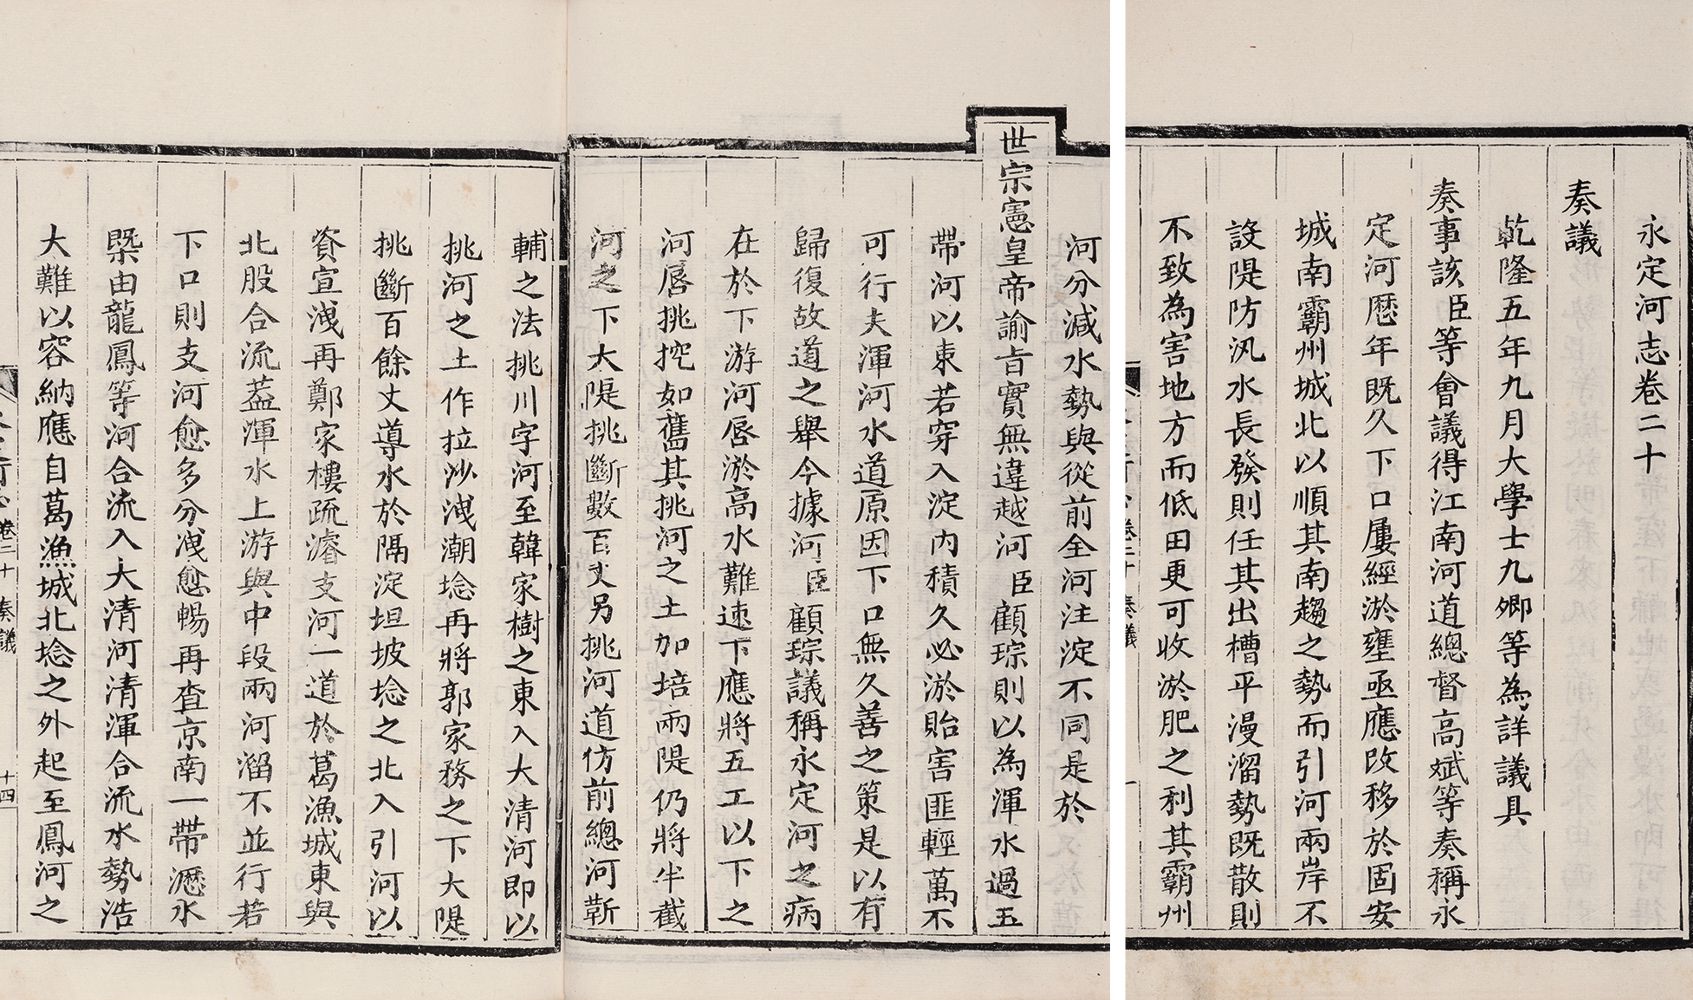 永定河志卷二十
奏議
乾隆五年九月大學士九卿等為詳議具
奏事該臣等會議得江南河道總督高斌等奏稱永
定河歴年既久下口屢經淤壅亟應改移於固安
城南霸州城北以順其南趨之勢而引河兩岸不
設隄防汎水長發則任其出槽平漫溜勢既散則
不致為害地方而低田更可收淤肥之利其霸州
卷二十 奏議 一
河分減水勢與從前全河注淀不同是於
世宗憲皇帝諭旨實無違越河臣顧琮則以為渾水過玉
帶河以東若穿入淀內積久必淤貽害匪輕萬不
可行夫渾河水道原因下口無久善之策是以有
歸復故道之舉今據河臣顧琮議稱永定河之病
在於下游河唇淤高水難速下應將五工以下之
河唇挑挖如舊其挑河之土加培兩隄仍將半截
河之下大隄挑斷數百丈另挑河道仿前總河靳
輔之法挑川字河至韓家樹之東入大清河即以
挑河之土作拉沙洩潮埝再將郭家務之下大隄
挑斷百餘丈導水於隔淀坦坡埝之北入引河以
資宣洩再鄭家樓疏濬支河一道於葛漁城東與
北股合流葢渾水上游與中段兩河溜不並行若
下口則支河愈多分洩愈暢再查京南一帶瀝水
槩由龍鳳等河合流入大清河清渾合流水勢浩
大難以容納應自葛漁城北埝之外起至鳳河之
卷二十 奏議 十四